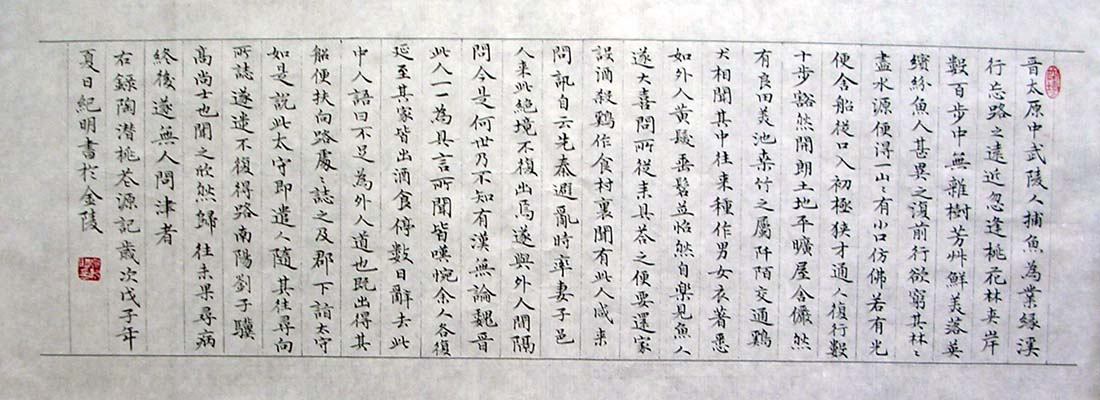 晋太原中武陵人捕魚為業緣溪
行忘路之遠近忽逢桃花林夹岸
數百步中無雜樹芳艸鮮美落英
繽紛魚人甚異之復前行欲窮其林〻
盡水源便得一山〻有小口仿佛若有光
便舍船從口入初極狹才通人復行數
十步豁然開朗土地平曠屋舍儼然
有良田美池桑竹之屬阡陌交通鷄
犬相聞其中往来種作男女衣著悉
如外人黄髮垂髫並怡然自樂見魚人
遂大喜問所從来具荅之便要還家
設酒殺鷄作食村裏聞有此人咸来
問訊自云先秦避亂時率妻子邑
人来此絶境不復出焉遂與外人間隔
問今是何世乃不知有漢無論魏晋
此人一一為具言所聞皆嘆惋余人各復
延至其家皆出酒食停數日辭去此
中人語曰不足為外人道也既出得其
船便扶向路處〻誌之及郡下詣太守
如是說此太守即遣人隨其往尋向
所誌遂迷不復得路南陽劉子驥
高尚士也聞之欣然歸往未果尋病
終後遂無人問津者
右録陶潜桃花源記歲次戊子年
夏日紀明書於金陵